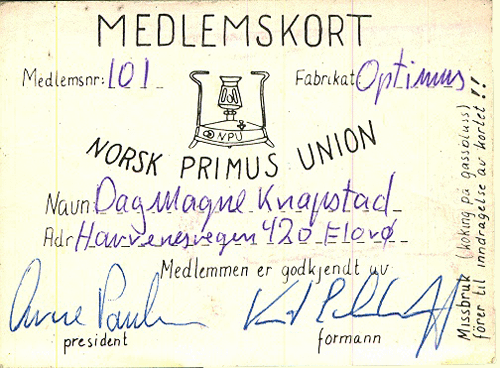 MEDLEMSKORT
Medlemsnr: 101
Fabrikat: Optimus
NPU
NORSK PRIMUS UNION
Navn: Dag Magne Knapstad
Adr: Havrenesvegen 420 Florø
Medlemmen er godkjendt av
president
formann
Missbruk (koking på gassbluss)
fører til inndragelse av kortet!!